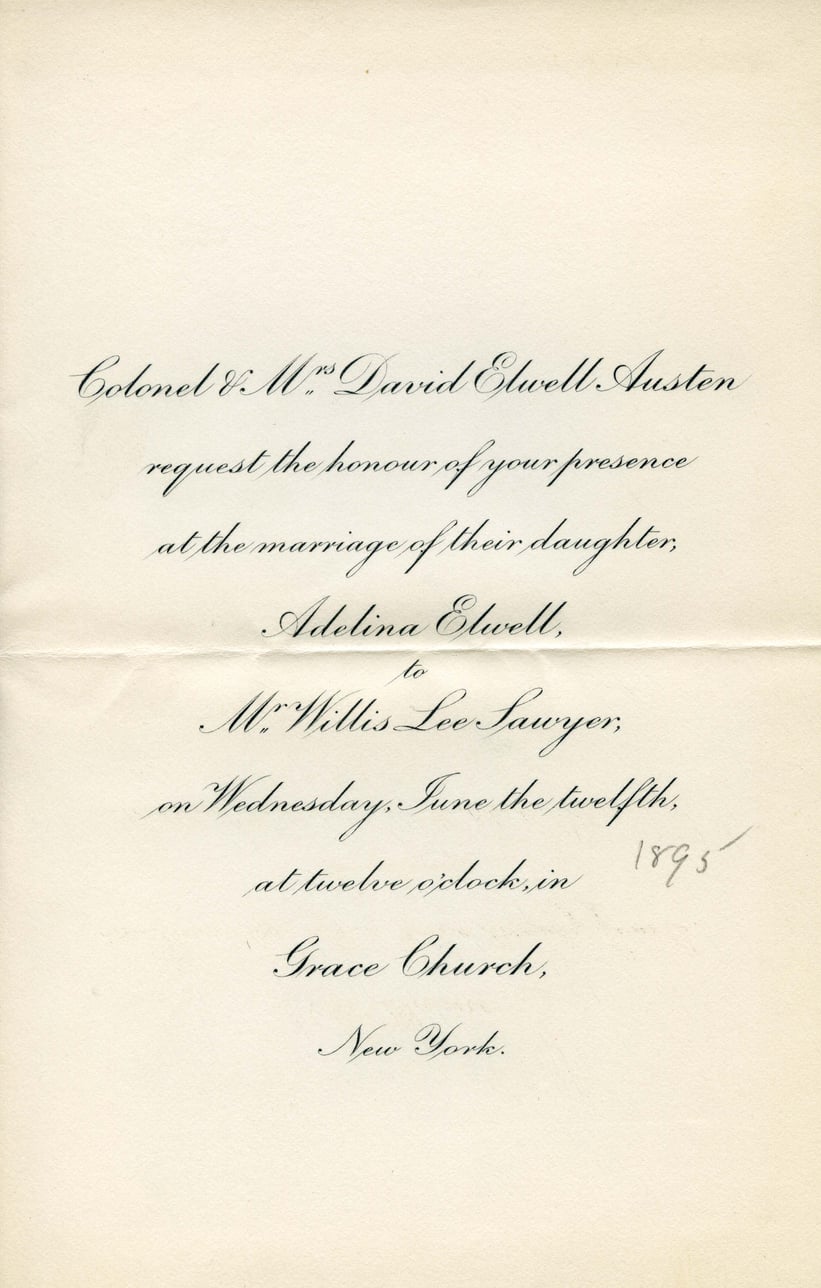 Colonel & Mrs. David Elwell Austen
request the honour of your presence
at the marriage of their daughter,
Adelina Elwell,
to
Mr. Willis Lee Sawyer,
on Wednesday, June the twelfth,
1895
at twelve o'clock, in
Grace Church,
New York.